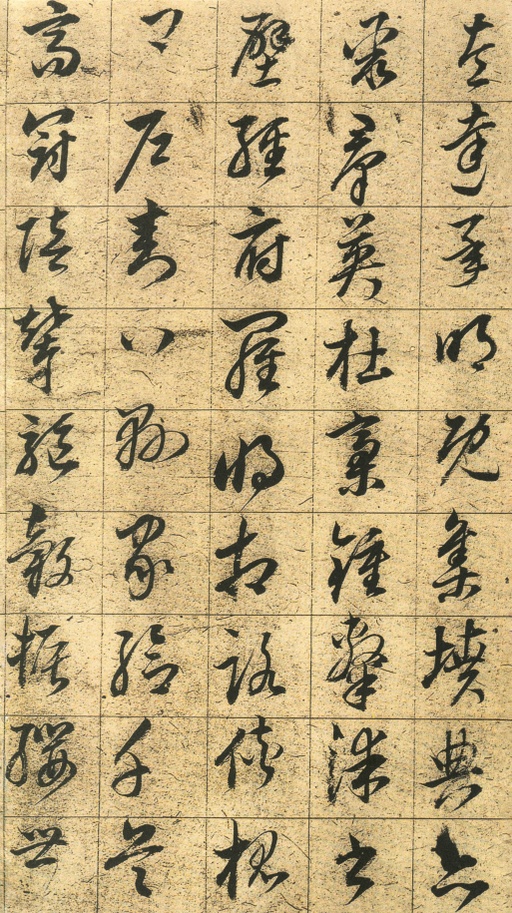 左達承明既集墳典亦
聚群英杜稾鍾隸漆書
壁經府羅將相路俠槐
卿戶封八縣家給千兵
高冠陪輦驅轂振纓世